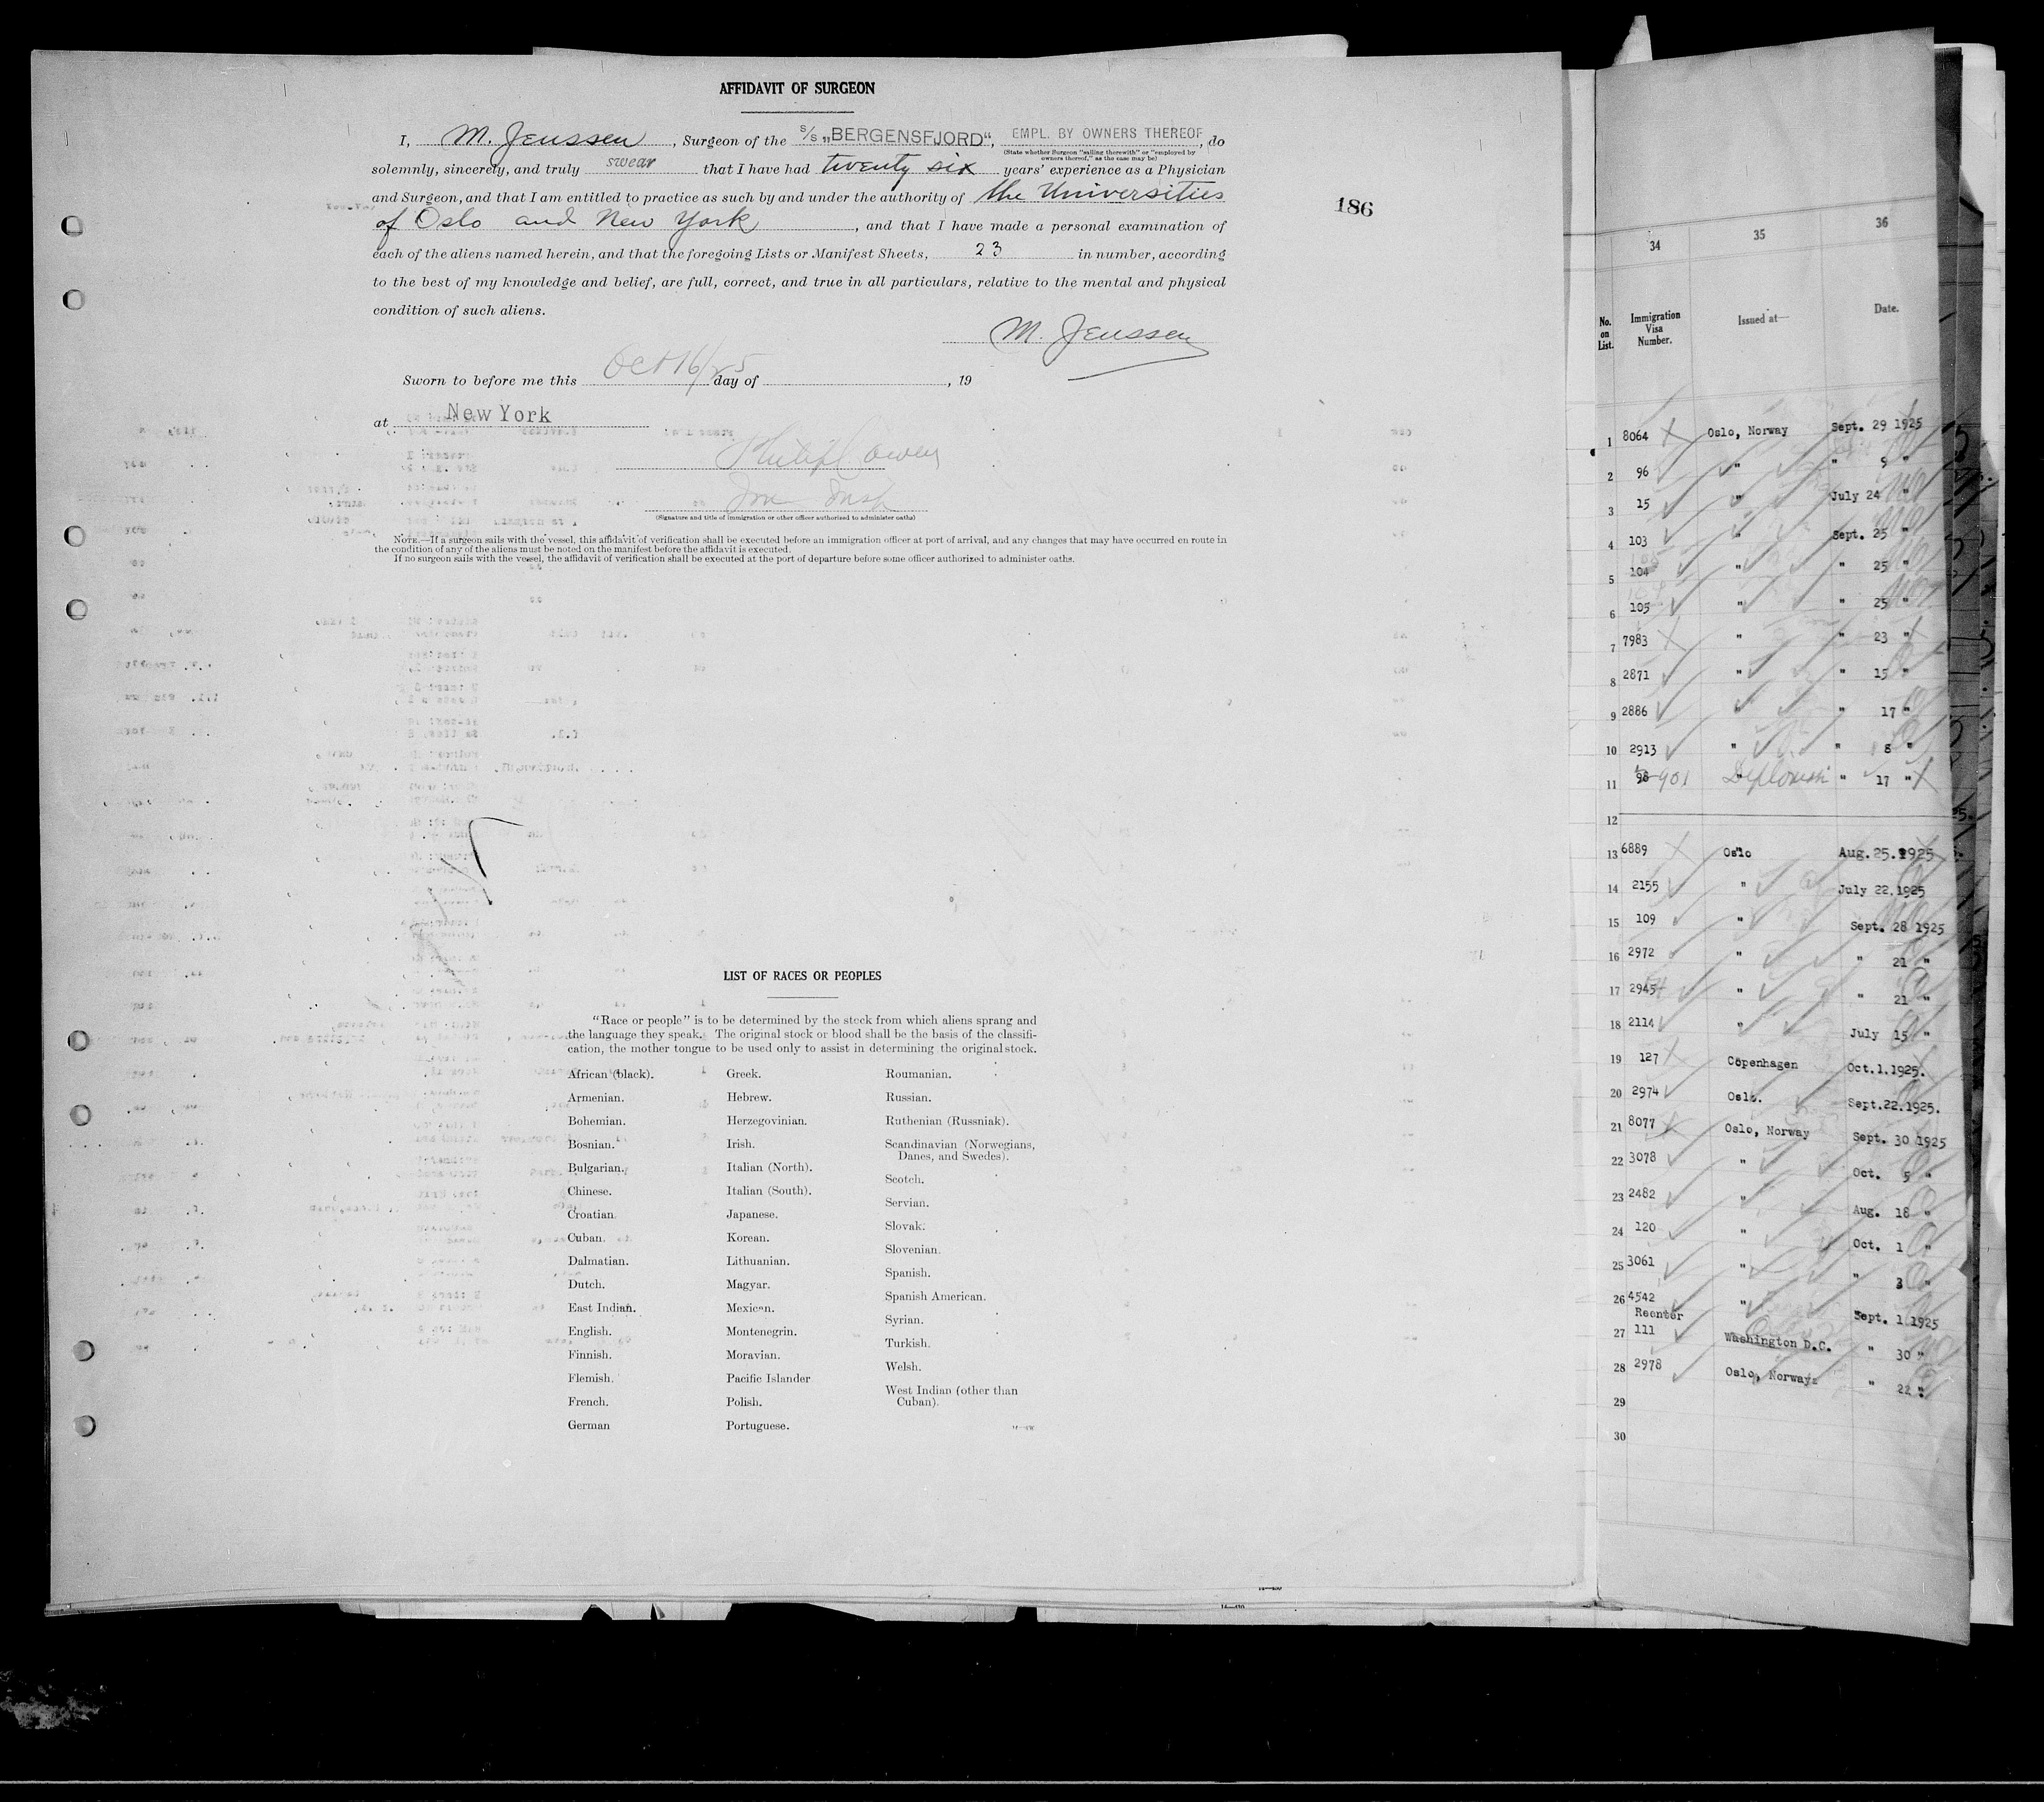 AFFIDAVIT OF SURGEON
I, M. Jenssen, Surgeon of the S/S „BERGENSFJORD“, EMPL. BY OWNERS THEREOF, do
(State whether Surgeon "sailing therewith" or "employed by
owners thereof," as the case may be)
solemnly, sincerely, and truly swear that I have had twenty six years' experience as a Physician
and Surgeon, and that I am entitled to practice as such by and under the authority of the Universities
of Oslo and New York, and that I have made a personal examination of
each of the aliens named herein, and that the foregoing Lists or Manifest Sheets, 23 in number, according
to the best of my knowledge and belief, are full, correct, and true in all particulars, relative to the mental and physical
condition of such aliens.
M. Jenssen
Sworn to before me this Oct 16/25 day of , 19
at New York
(Signature and title of immigration or other officer authorized to administer oaths)
NOTE.—If a surgeon sails with the vessel, this affidavit of verification shall be executed before an immigration officer at port of arrival, and any changes that may have occurred en route in
the condition of any of the aliens must be noted on the manifest before the affidavit is executed.
If no surgeon sails with the vessel, the affidavit of verification shall be executed at the port of departure before some officer authorized to administer oaths.
186
LIST OF RACES OR PEOPLES
"Race or people" is to be determined by the stock from which aliens sprang and
the language they speak. The original stock or blood shall be the basis of the classifi-
cation, the mother tongue to be used only to assist in determining the original stock.
African (black).
Armenian.
Bohemian.
Bosnian.
Bulgarian.
Chinese.
Croatian.
Cuban.
Dalmatian.
Dutch.
East Indian.
English.
Finnish.
Flemish.
French.
German
Greek.
Hebrew.
Herzegovinian.
Irish.
Italian (North).
Italian (South).
Japanese.
Korean.
Lithuanian.
Magyar.
Mexican.
Montenegrin.
Moravian.
Pacific Islander
Polish.
Portuguese.
Roumanian.
Russian.
Ruthenian (Russniak).
Scandinavian (Norwegians,
Danes, and Swedes).
Scotch.
Servian.
Slovak.
Slovenian.
Spanish.
Spanish American.
Syrian.
Turkish.
Welsh.
West Indian (other than
Cuban).
34 35 36
No. on List. Immigration Visa Number. Issued at— Date.
1 8064 Oslo, Norway Sept. 29 1925
2 96 " " 9 "
3 15 " July 24 "
4 103 " Sept. 25 "
5 104 " " 25 "
6 105 " " 25 "
7 7983 " " 23 "
8 2871 " " 15 "
9 2886 " " 17 "
10 2913 " " 8 "
11 98 901 " " 17 "
12
13 6889 Oslo Aug. 25. 1925
14 2155 " July 22. 1925
15 109 " Sept. 28 1925
16 2972 " " 21 "
17 2945 " " 21 "
18 2114 " July 15 "
19 127 Copenhagen Oct. 1. 1925.
20 2974 Oslo. Sept. 22. 1925.
21 8077 Oslo, Norway Sept. 30 1925
22 3078 " Oct. 5 "
23 2482 " Aug. 18 "
24 120 " Oct. 1 "
25 3061 " " 3 "
26 4542 " Sept. 1 1925
Reenter
27 111 Washington D.C. " 30 "
28 2978 Oslo, Norway " 22 "
29
30